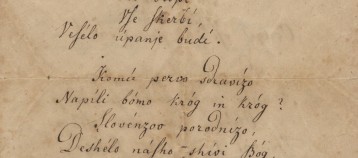 Vſe ſkerbí,
Veſélo úpanje budí.
Komú pervo sdravízo
Napíli bómo króg in króg?
Slovénzov porodnízo,
Deshélo náſho – shívi Bóg,